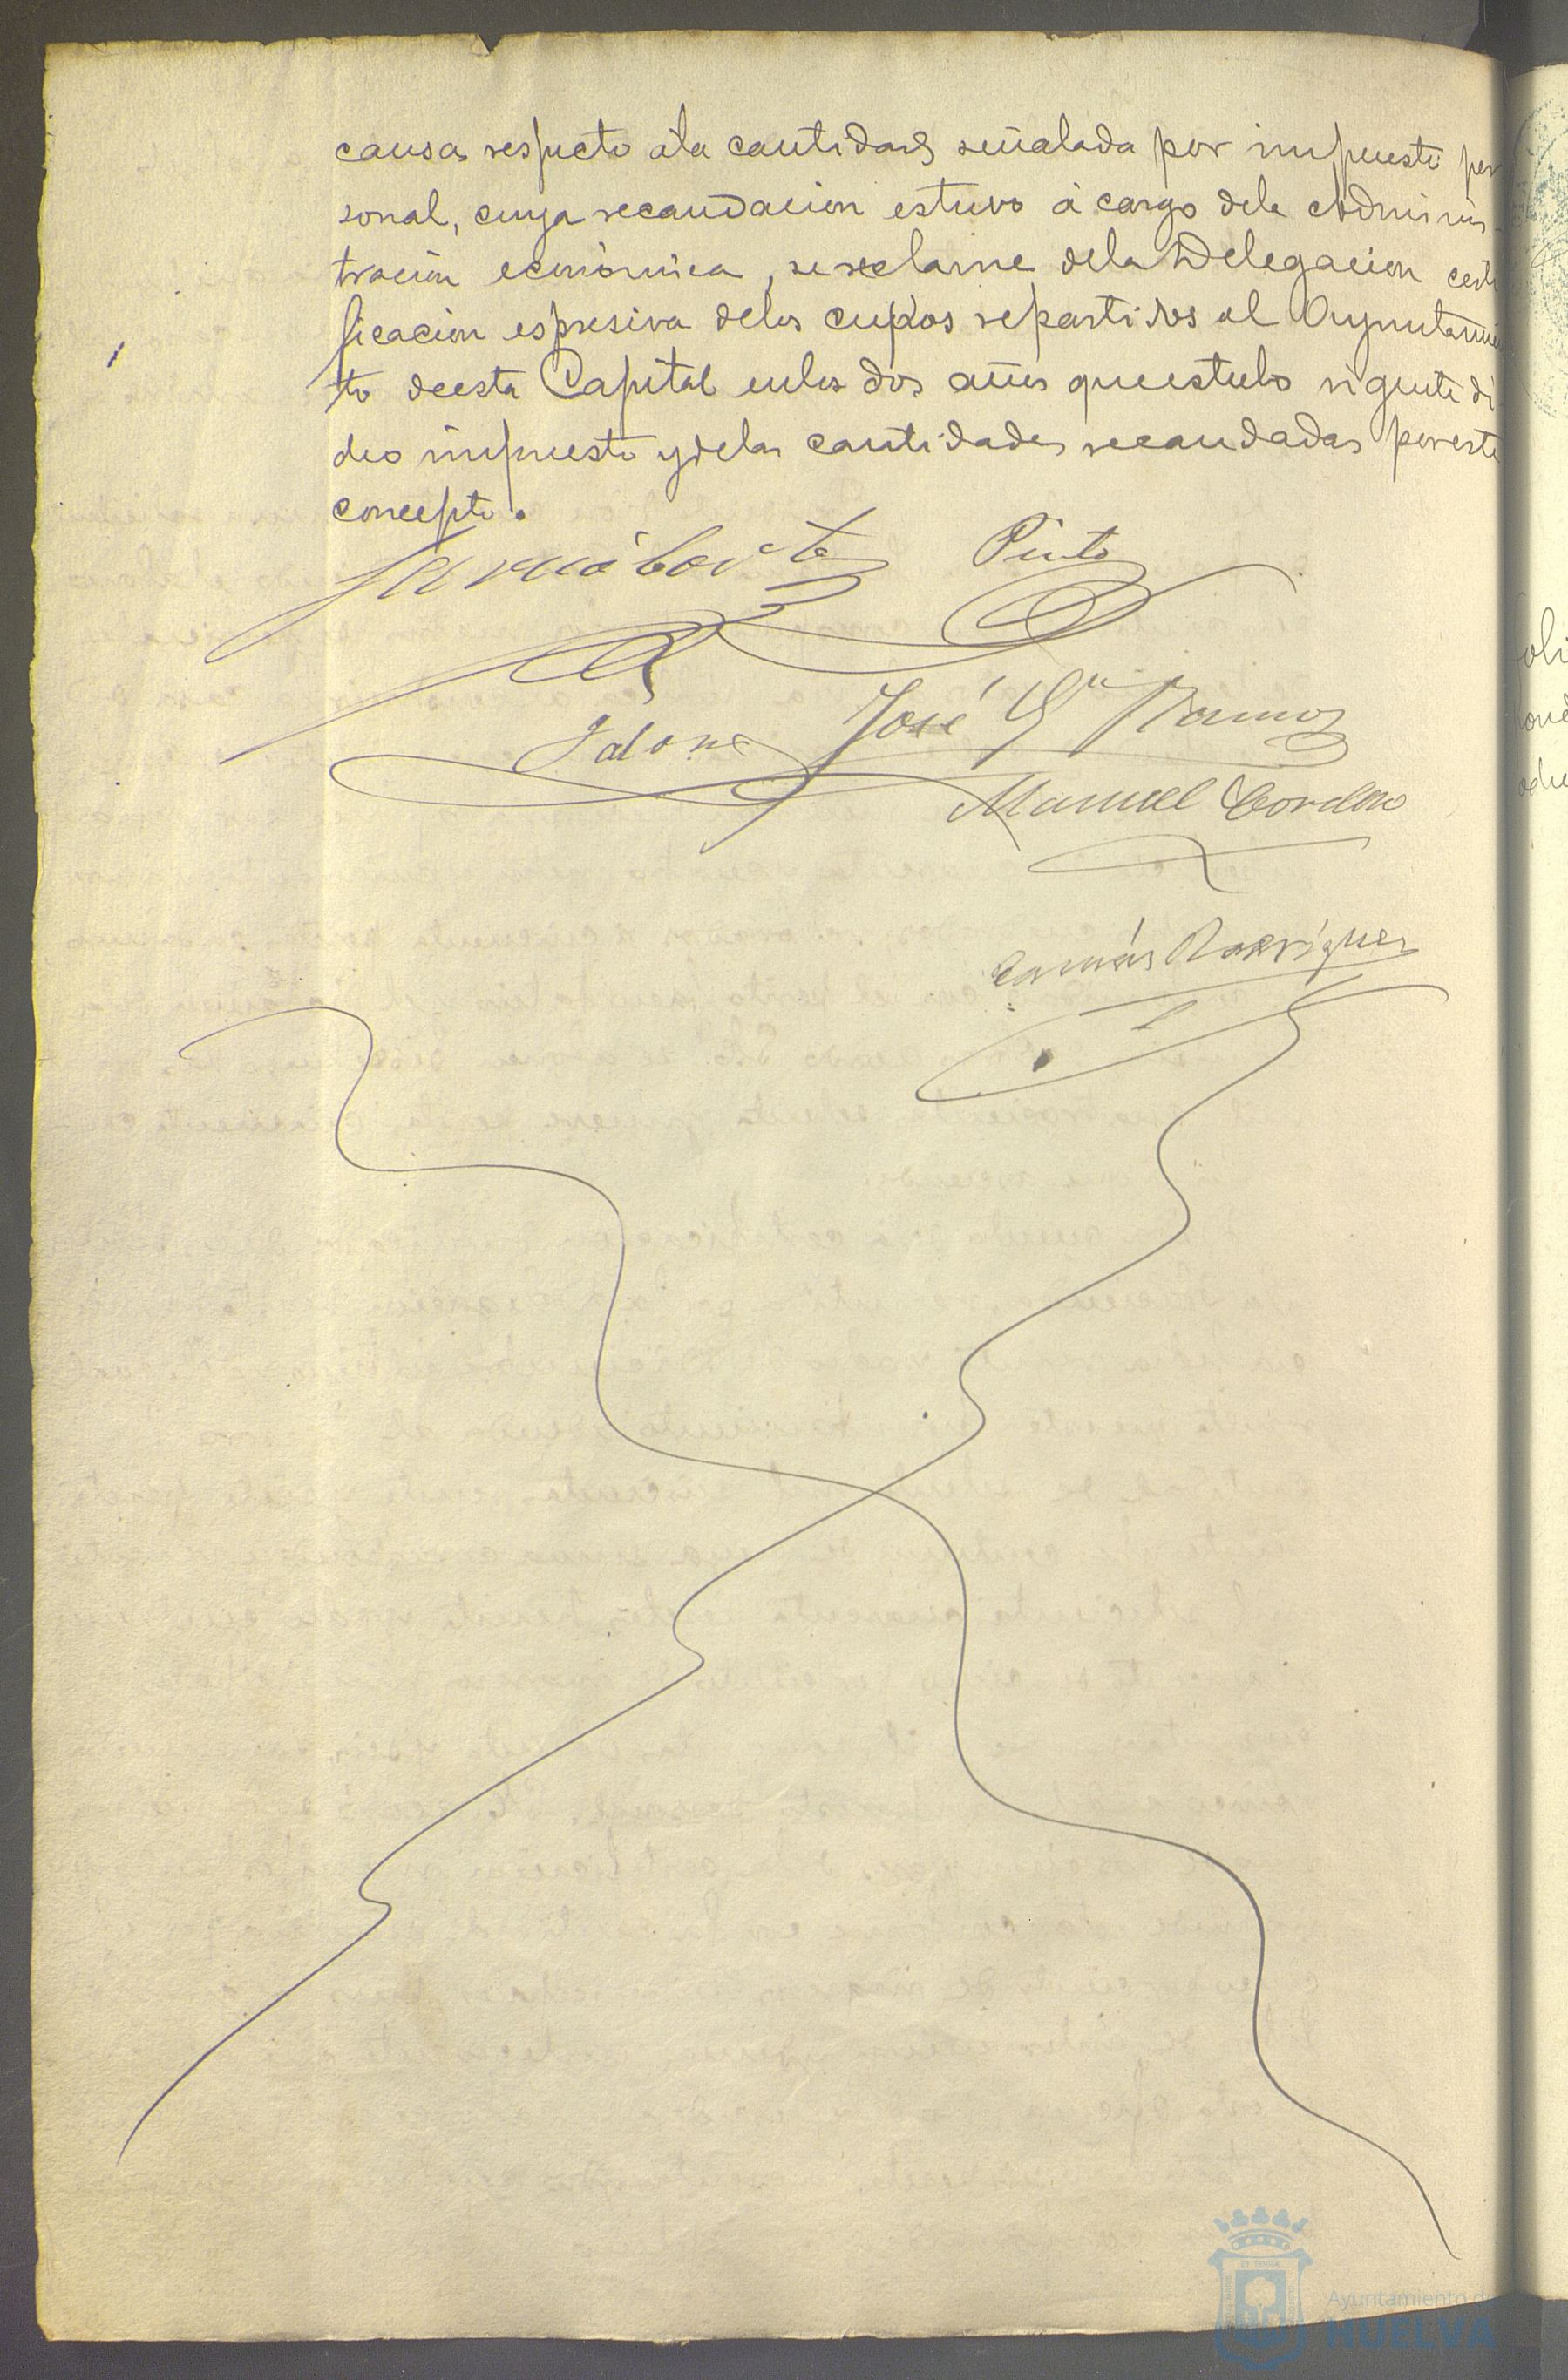 causa respecto ála cantidad señalada por impuesto per
sonal, cuya recaudacion estuvo á cargo dela Adminis-
tración económica, se reclame dela Delegacion certi
ficacion espresiva delos cupos repartidos al Ayuntamien
to deesta Capital enlos dos años queestubo vigente di
cho impuesto y delas cantidades recaudadas poreste
concepto.
Pinto
José Gª Ramos
Jalone
Manuel Cordero
Tomás Rodríguez
Ayuntamiento de
HUELVA